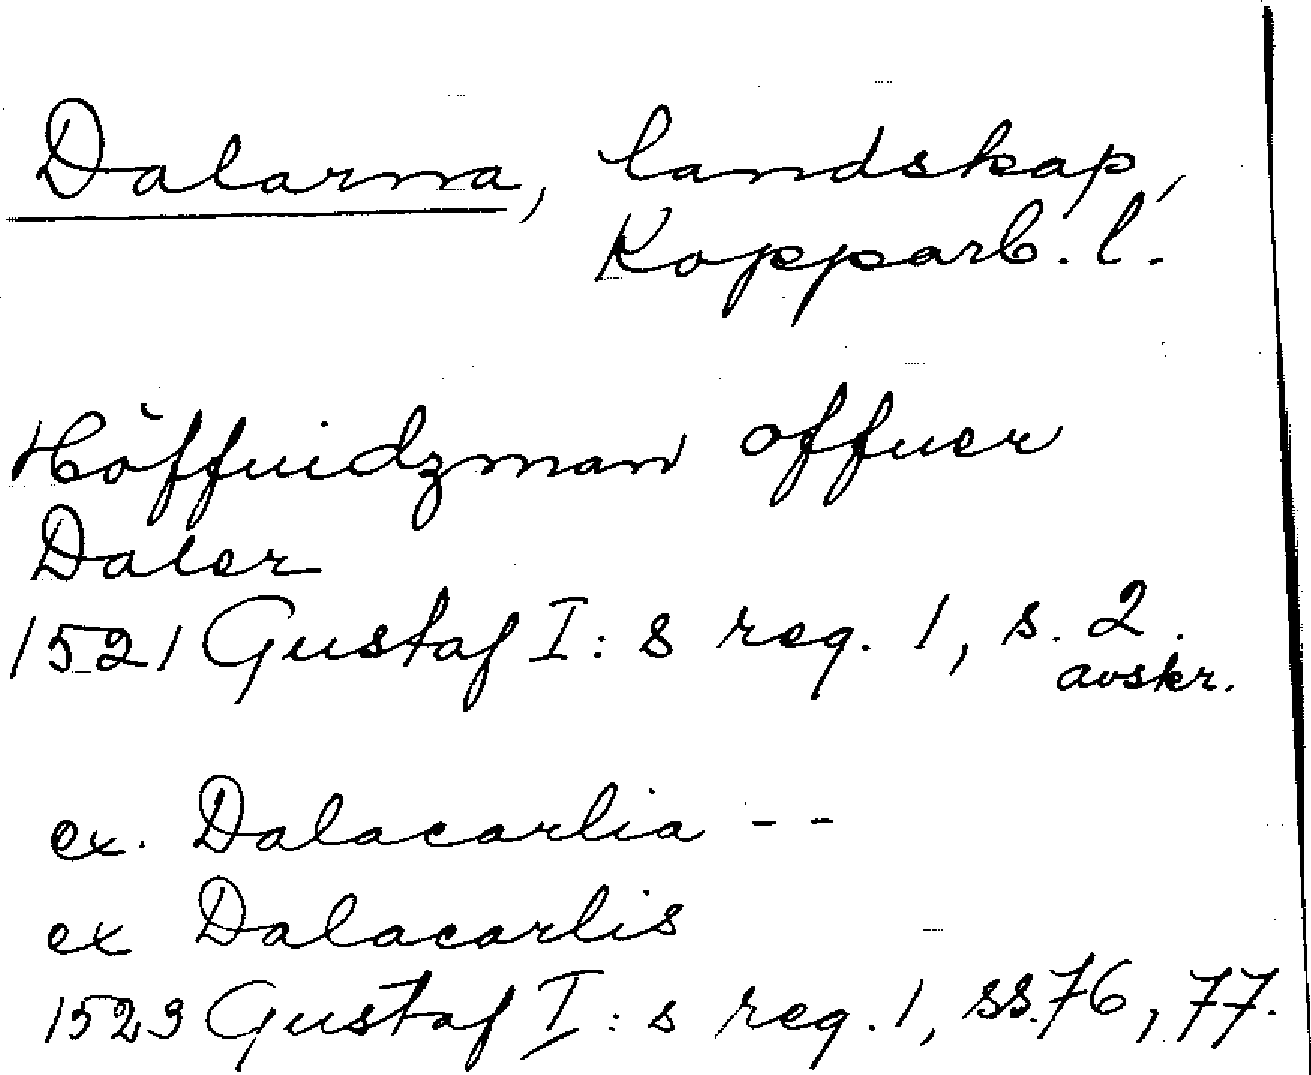 Dalarna, landskap,
Kopparb. l.
Höffuidzman offuer
Daler
1521 Gustaf I: s reg. 1, s. 2.
avskr.
ex. Dalacarlia --
ex Dalacarlis
1523 Gustaf I: s reg. 1, ss. 76, 77.